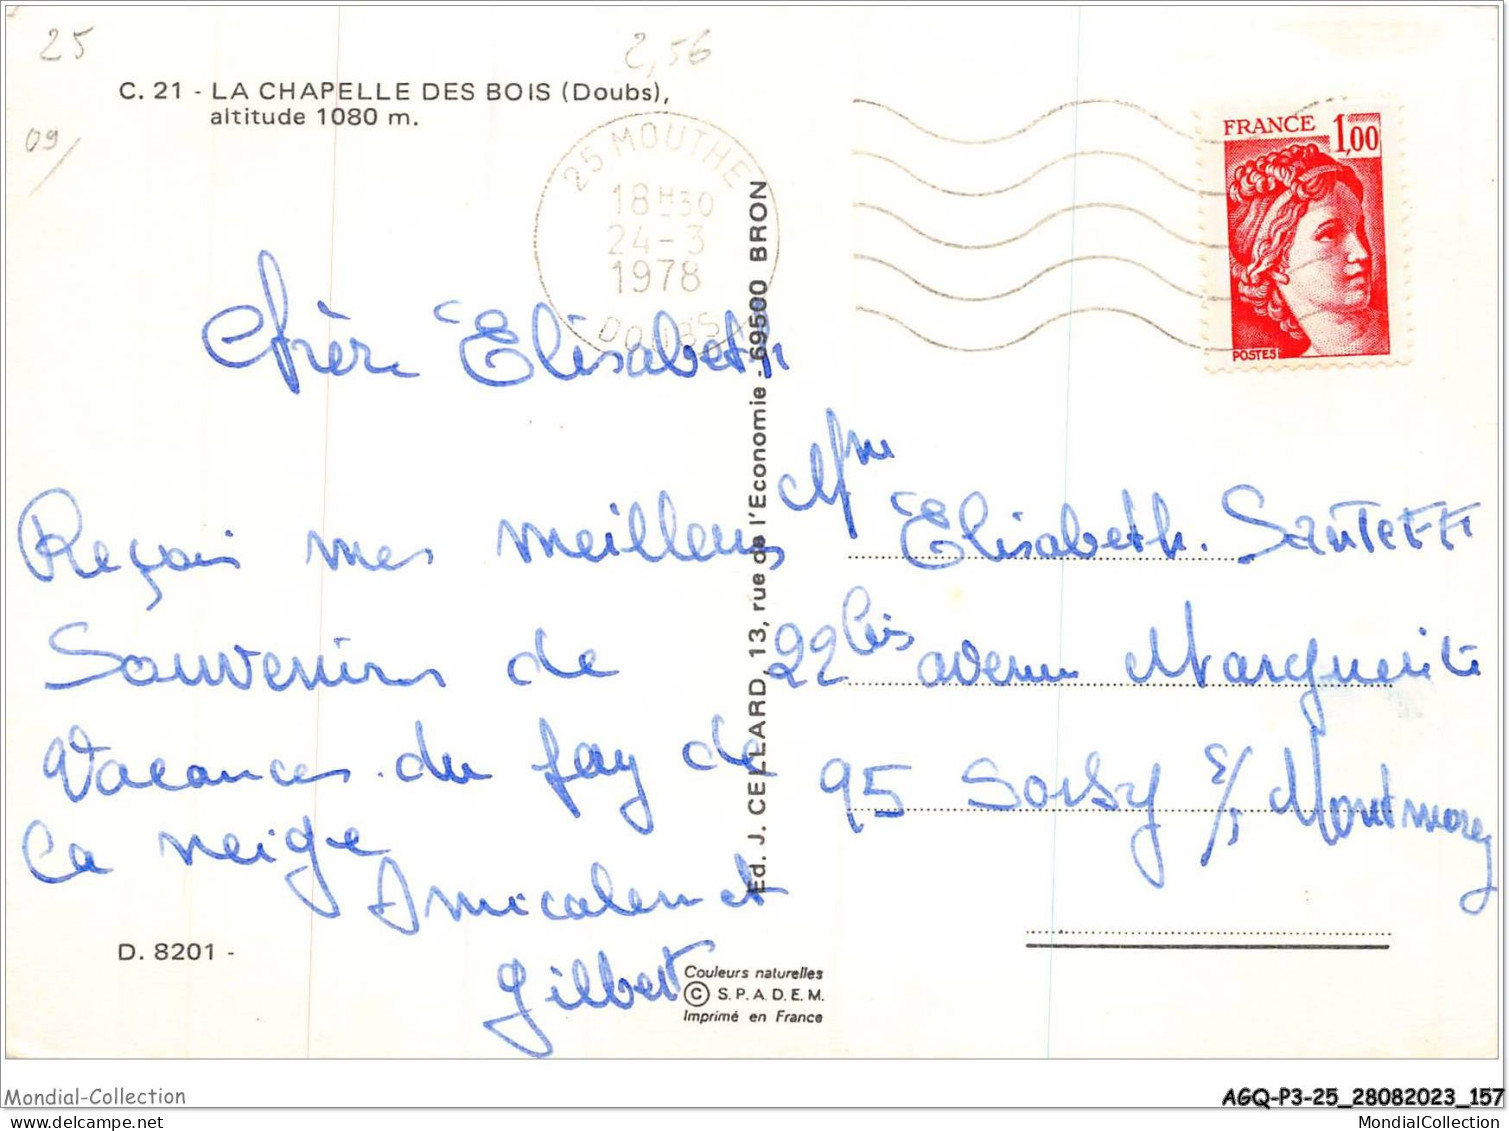 25
2,56
C. 21 - LA CHAPELLE DES BOIS (Doubs),
altitude 1080 m.
09/
25 MOUTHE
18H30
24-3
1978
DOUBS
FRANCE 1,00
POSTES
Chère Elisabeth
Reçois mes meilleurs
Souvenirs de
Vacances du pay de
la neige
Amicalement
Gilbert
D. 8201 -
Ed. J. CELLARD, 13, rue de l'Economie - 69500 BRON
Couleurs naturelles
© S.P.A.D.E.M.
Imprimé en France
Mme
Elisabeth. Santeff
22 bis avenue Marguerite
95 Soisy s/s Montmorency
Mondial-Collection
AGQ-P3-25_28082023_157
MondialCollection